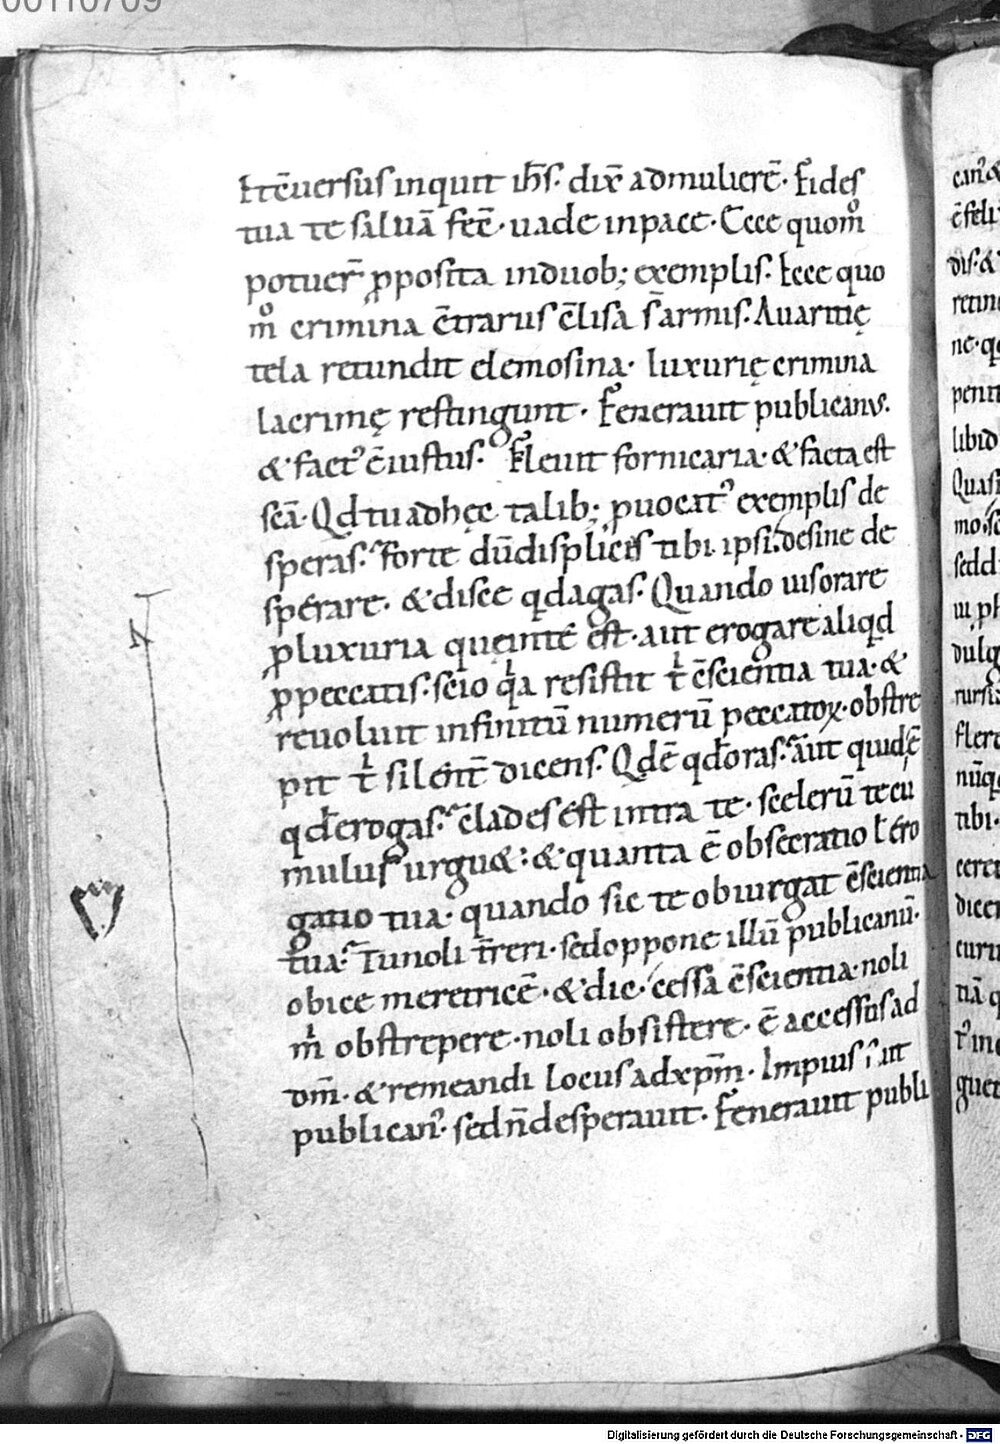 00110709
Et c̄uersus inquit ih̄s. dix̄ ad mulierē. Fides
tua te saluā fec̄. uade in pace. Ecce quom̊
potuer̄ ꝓposita in duob; exemplis. Ecce quo
m̊ crimina c̄trariis c̄lisa s̄ armis. Auaritię
tela retundit elemosina. luxurię crimina
lacrimę restingunt. Fenerauit publicanus.
& fact᾽ ē iustus. Fleuit fornicaria. & facta est
sc̄a. Qd tu adhęc talib; ꝓuocat᾽ exemplis de
speras. Forte dū displices tibi ipsi. desine de
sperare. & disce qd agas. Quando uis orare
ꝓ luxuria quę in te est. aut erogare aliqd
ꝓ peccatis. scio qͥa resistit tͥ c̄scientia tua. &
reuoluit infinitū numerū peccatoꝝ. obstre
pit tͥ silent̄ dicens. Qd ē qd oras. aut quid ē
qd erogas. clades est intra te. scelerū te cu
mulus urguet. & quanta ē obsecratio ł ero
gatio tua. quando sic te obiurgat c̄scientia
tua. Tu noli t̄reri. sed oppone illū publicanū.
obice meretricē. & dic. cessa c̄scientia. noli
mͥ obstrepere. noli obsistere. ē accessus ad
dm̄. & remeandi locus ad xp̄m. Impius fuit
publican᾽. sed n̄ desperauit. Fenerauit publi
Digitalisierung gefördert durch die Deutsche Forschungsgemeinschaft - DFG